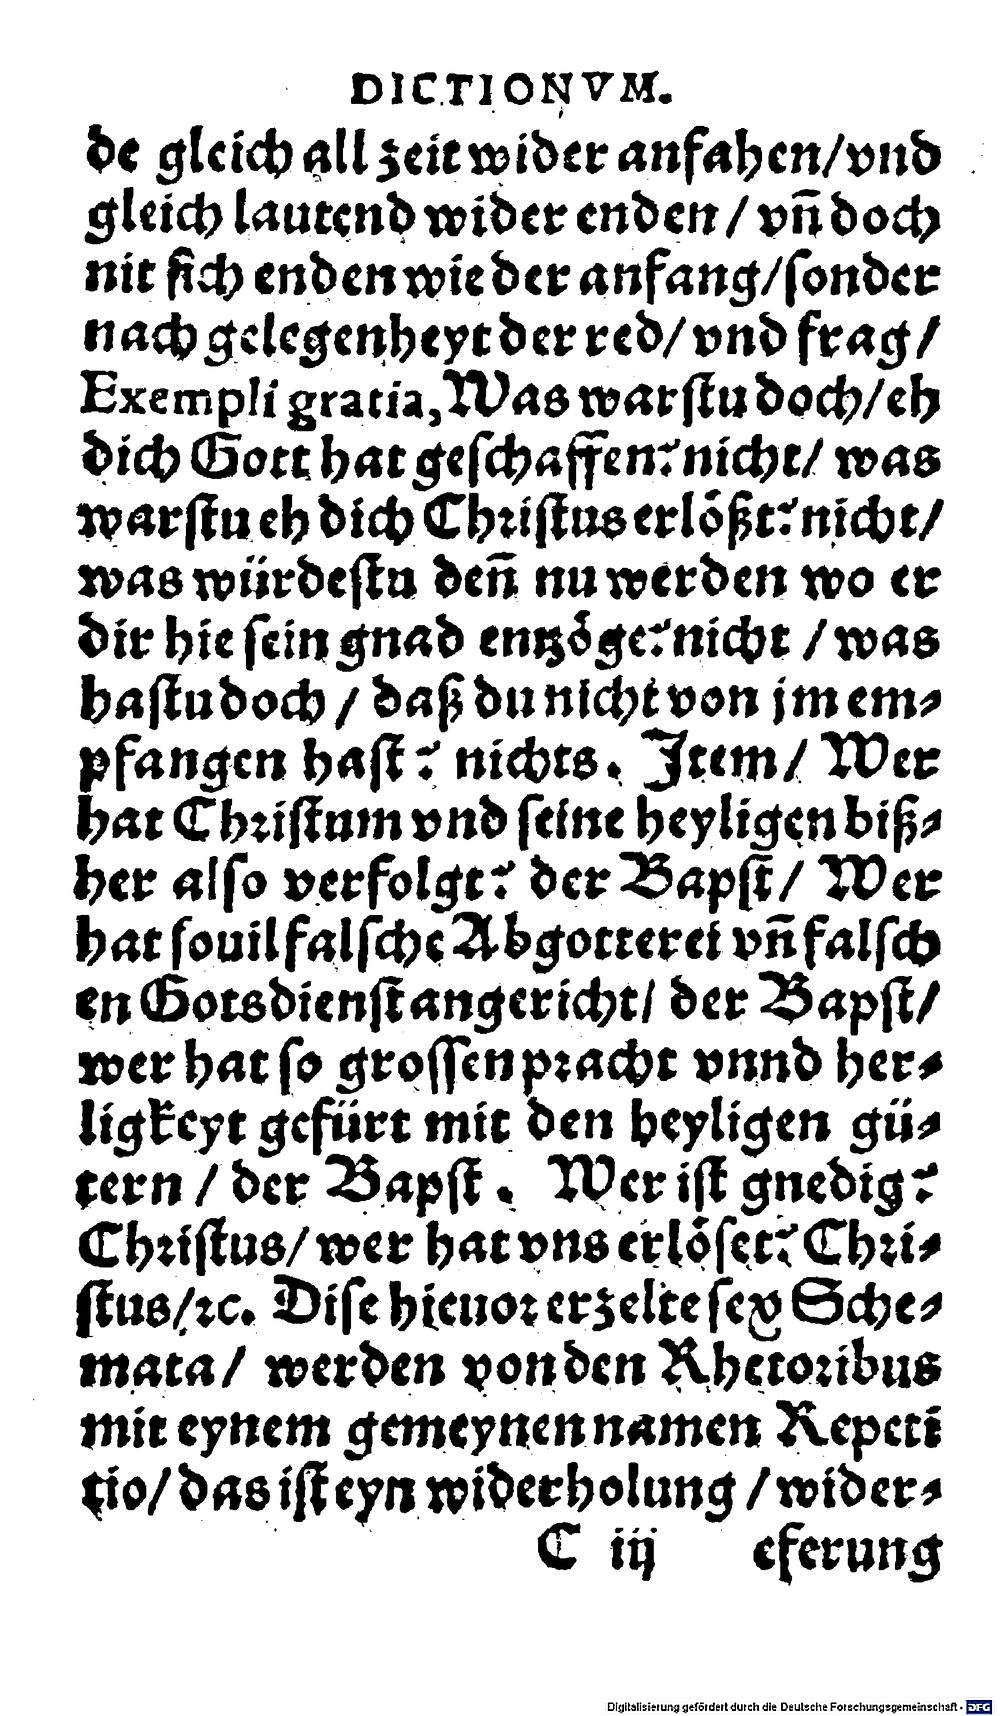 DICTIONVM.
de gleich all zeit wider anfahen/vnd
gleich lautend wider enden / vñ doch
nit sich enden wie der anfang/sonder
nach gelegenheyt der red/ vnd frag/
Exempli gratia, Was warstu doch/eh
dich Gott hat geschaffen? nicht/ was
warstu eh dich Christus erlößt? nicht/
was würdestu deñ nu werden wo er
dir hie sein gnad entzöge? nicht / was
hastu doch / daß du nicht von jm em⸗
pfangen hast? nichts. Item/ Wer
hat Christum vnd seine heyligen biß⸗
her also verfolgt? der Bapst/ Wer
hat souil falsche Abgotterei vñ falsch
en Gotsdienst angericht/ der Bapst/
wer hat so grossen pracht vnnd her⸗
ligkeyt gefürt mit den heyligen gü⸗
tern / der Bapst. Wer ist gnedig?
Christus/ wer hat vns erlöset? Chri⸗
stus/ꝛc. Dise hieuor erzelte sex Sche⸗
mata/ werden von den Rhetoribus
mit eynem gemeynen namen Repeti
tio/ das ist eyn widerholung / wider⸗
C iij eferung
Digitalisierung gefördert durch die Deutsche Forschungsgemeinschaft - DFG